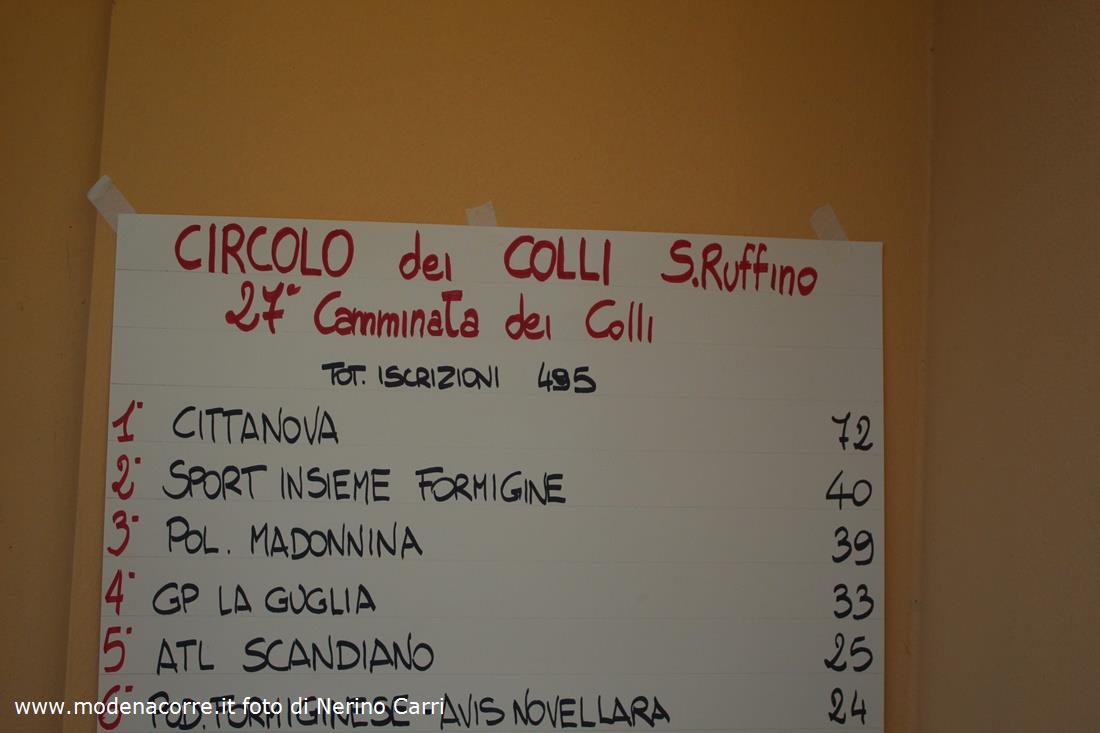 CIRCOLO dei COLLI S.Ruffino
27° Camminata dei Colli
TOT. ISCRIZIONI 495
1° CITTANOVA 72
2° SPORT INSIEME FORMIGINE 40
3° POL. MADONNINA 39
4° GP LA GUGLIA 33
5° ATL SCANDIANO 25
6° POD.FORMIGINESE - AVIS NOVELLARA 24
www.modenacorre.it foto di Nerino Carri